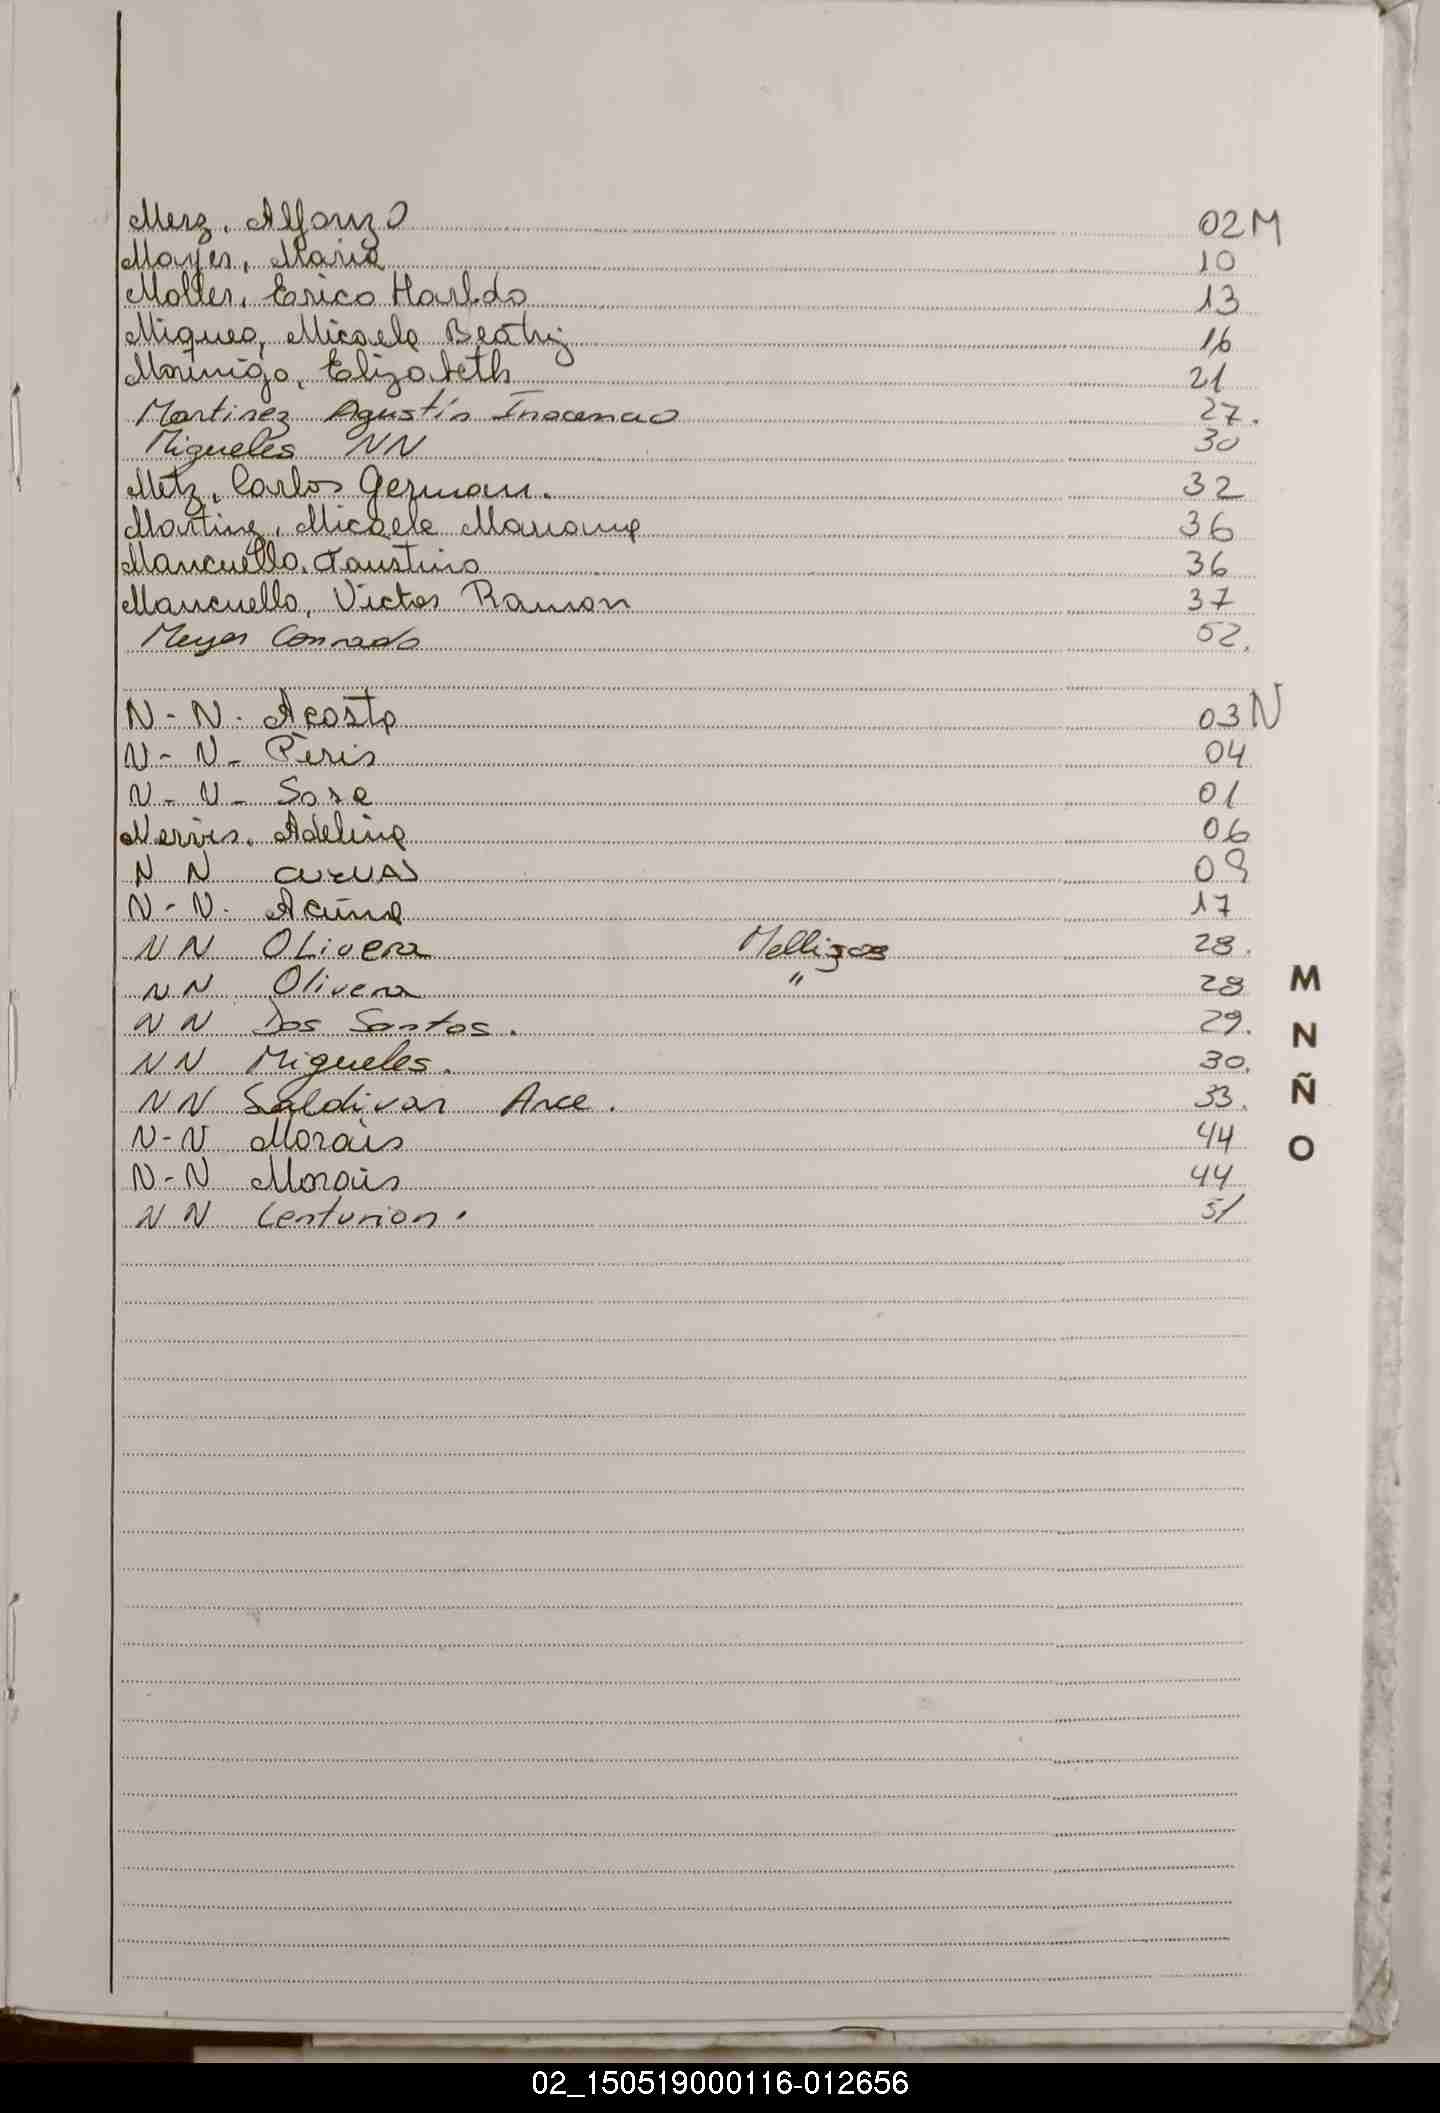 Merz, Alfonzo 02 M
Mayer, Maria 10
Moller, Erico Haroldo 13
Miqueo, Micaela Beatriz 16
Morinigo, Elizabeth 21
Martinez Agustín Inocencio 27.
Migueles NN 30
Metz, Carlos German. 32
Martinez, Micaela Mariana 36
Mancuello, Faustino 36
Mancuello, Victor Ramon 37
Meyer Conrado 52.
N-N. Acosta 03 N
N-N- Peris 04
N-N- Sosa 01
Nervis, Adelina 06
N N CUEVAS 09
N-N. Acuña 17
NN OLivera Mellizos 28.
NN Olivera " 28
NN Dos Santos. 29.
NN Migueles. 30.
NN Saldivar Arce. 33.
N-N Morais 44
N-N Morais 44
NN Centurion. 51
M
N
Ñ
O
02_150519000116-012656